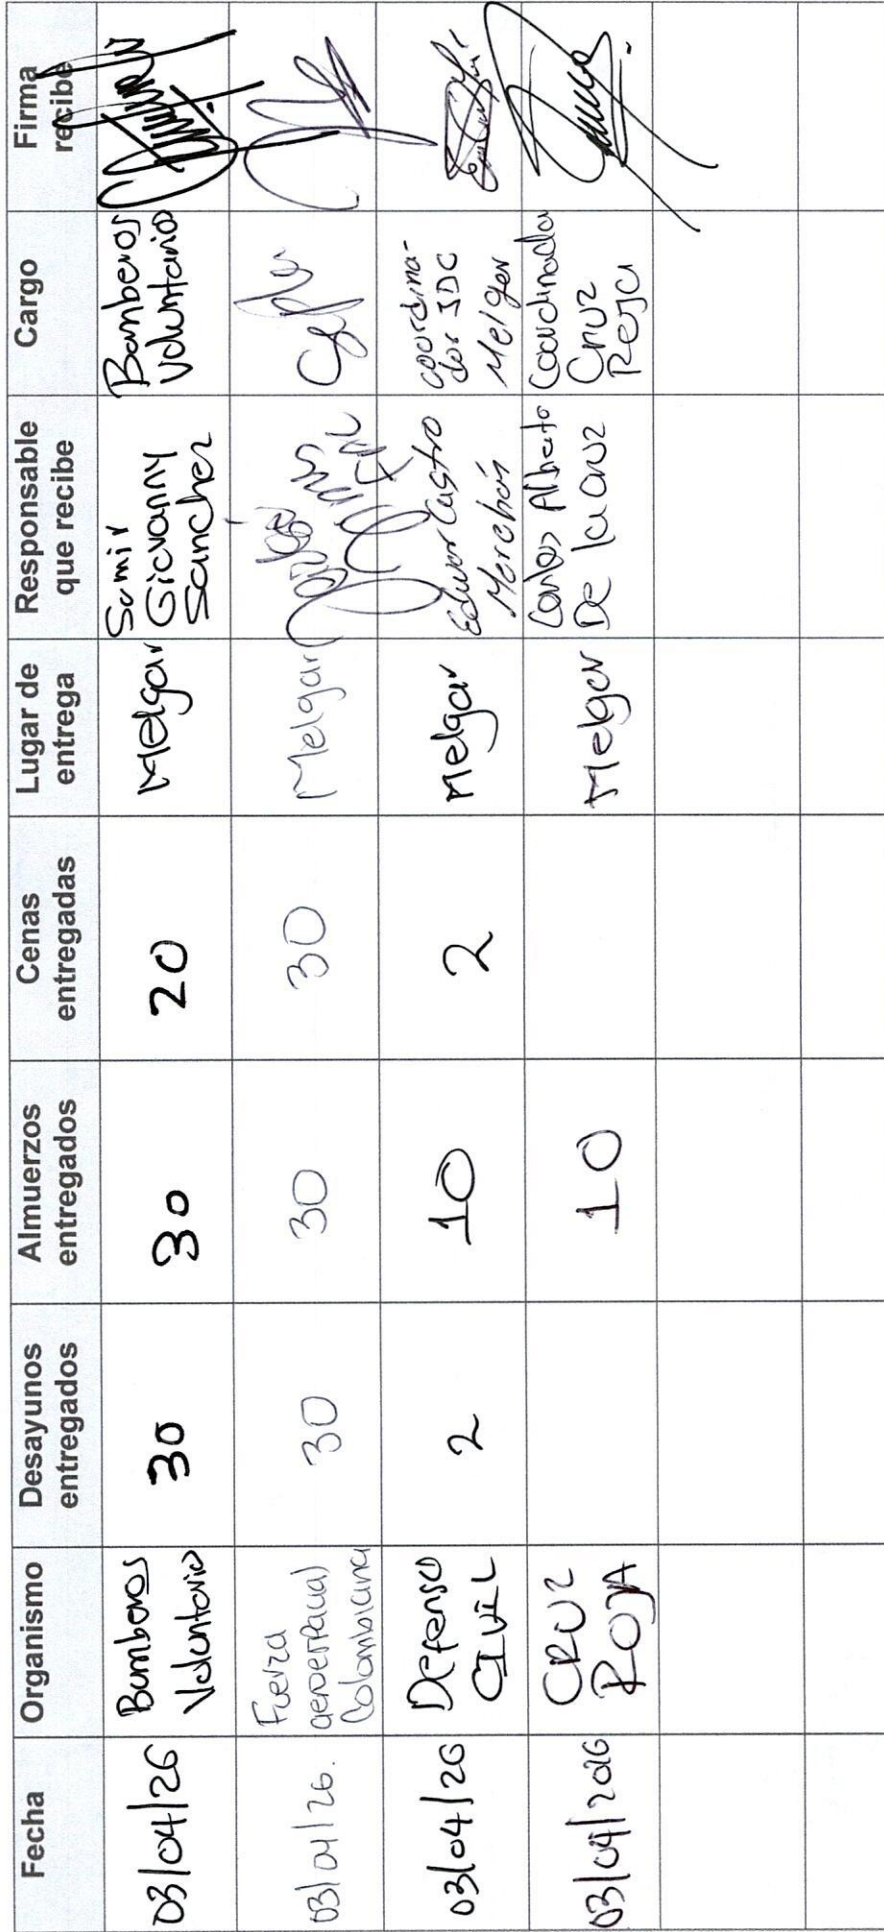 Fecha
Organismo
Desayunos
entregados
Almuerzos
entregados
Cenas
entregadas
Lugar de
entrega
Responsable
que recibe
Cargo
Firma
recibe
03/04/26
Bomberos
Voluntario
30
30
20
Melgar
Samir
Giovanny
Sanchez
Bomberos
Voluntarios
03/04/26.
Fuerza
aeroespacial
Colombiana
30
30
30
Melgar
03/04/26
Defensa
CIVIL
2
10
2
Melgar
Edwar Castro
Merchán
coordina-
dor JDC
Melgar
03/04/2026
CRUZ
ROJA
10
Melgar
Carlos Alberto
De la Cruz
Coordinador
Cruz
Roja